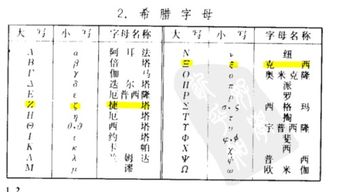 2. 希腊字母
大写 小写 字母名称 大写 小写 字母名称
Α α 阿耳法 Ν ν 纽
Β β 倍塔 Ξ ξ 克西
Γ γ 伽马 Ο ο 奥米克隆
Δ δ 塔 Π π 派
Ε ε 厄普西隆 Ρ ρ 罗
Ζ ζ 捷塔 Σ σ 西格玛
Η η 厄塔 Τ τ
Θ 西塔 Υ υ 宇普西隆
Ι ι 约塔 Φ φ 斐
Κ κ 卡帕 Χ χ 喜
Λ λ 达 Ψ ψ 普西
Μ μ 谬 Ω ω 欧米伽